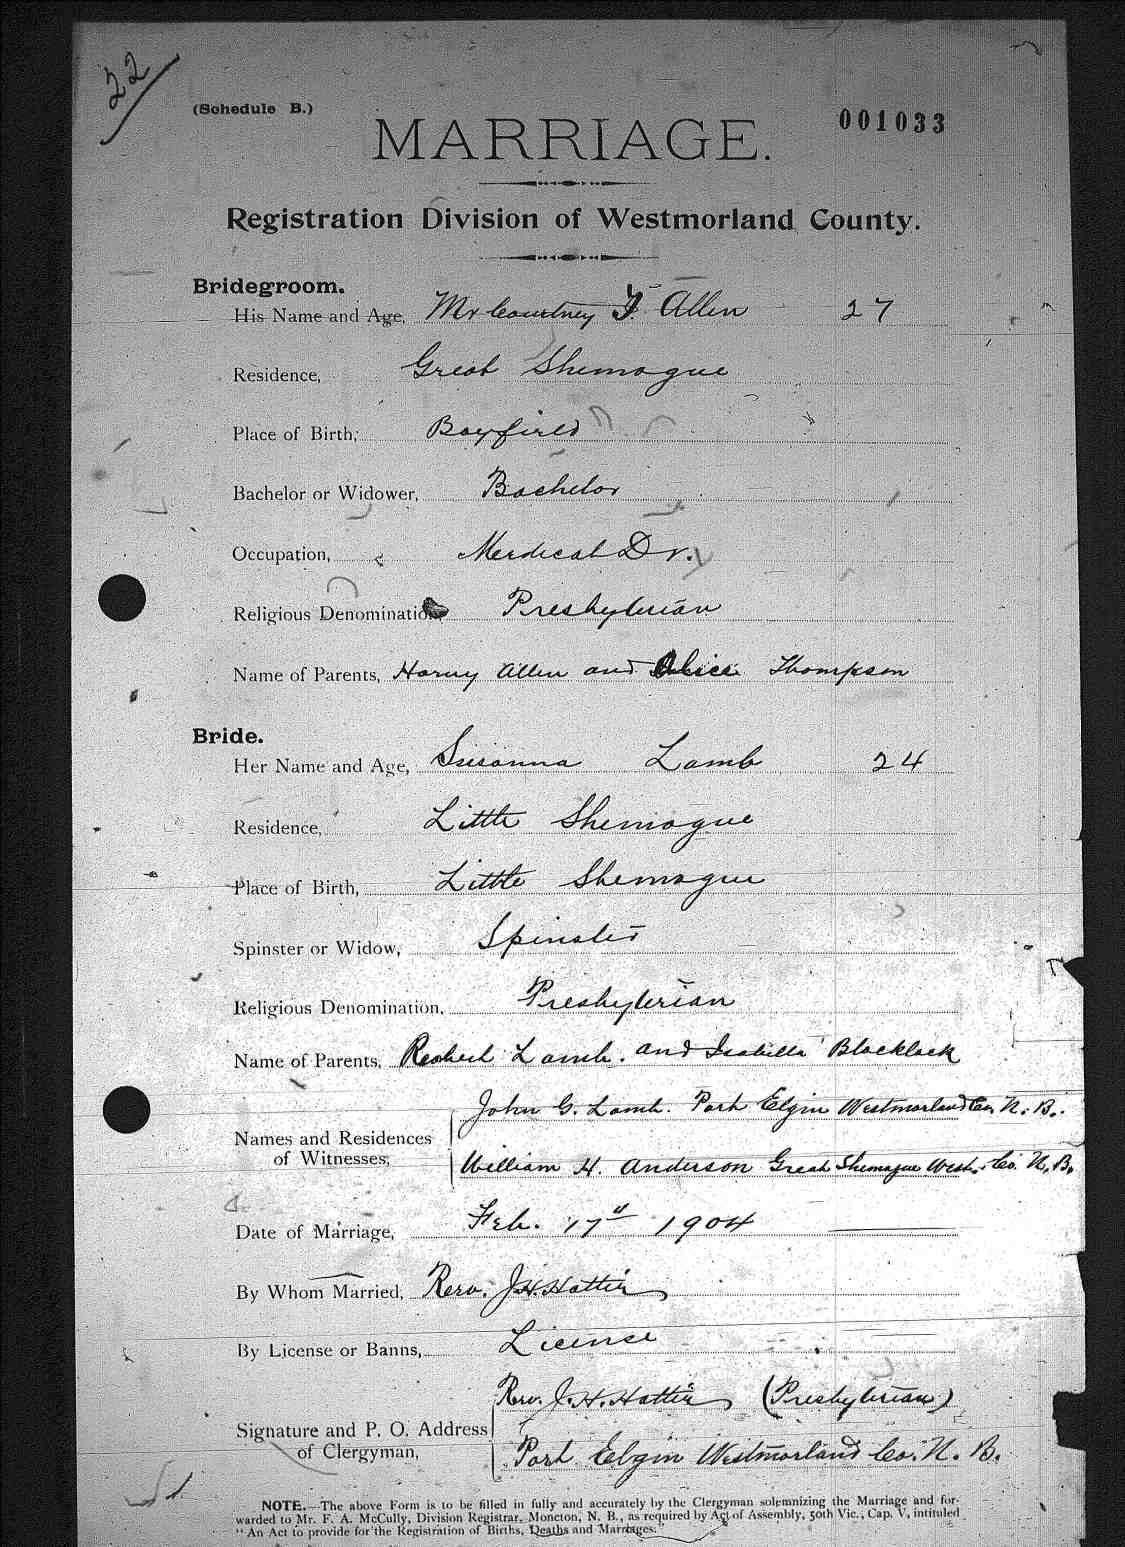 22
(Schedule B.)
001033
MARRIAGE.
Registration Division of Westmorland County.
Bridegroom.
His Name and Age, Mr Courtney F. Allen 27
Residence, Great Shemogue
Place of Birth, Bayfield
Bachelor or Widower, Bachelor
Occupation, Medical Dr.
Religious Denomination, Presbyterian
Name of Parents, Harvy Allen and Alice Thompson
Bride.
Her Name and Age, Susanna Lamb 24
Residence, Little Shemogue
Place of Birth, Little Shemogue
Spinster or Widow, Spinster
Religious Denomination, Presbyterian
Name of Parents, Robert Lamb. and Isabella Blacklock
John G. Lamb. Port Elgin Westmorland Co, N. B.
Names and Residences
of Witnesses,
William H. Anderson Great Shemogue West. Co. N. B.
Date of Marriage, Feb. 17" 1904
By Whom Married, Rev. J. H. Hattie
By License or Banns, License
Rev. J. H. Hattie (Presbyterian)
Signature and P. O. Address
of Clergyman,
Port Elgin Westmorland Co. N. B.
NOTE.—The above Form is to be filled in fully and accurately by the Clergyman solemnizing the Marriage and for-
warded to Mr. F. A. McCully, Division Registrar, Moncton, N. B., as required by Act of Assembly, 50th Vic., Cap. V, intituled
"An Act to provide for the Registration of Births, Deaths and Marriages."